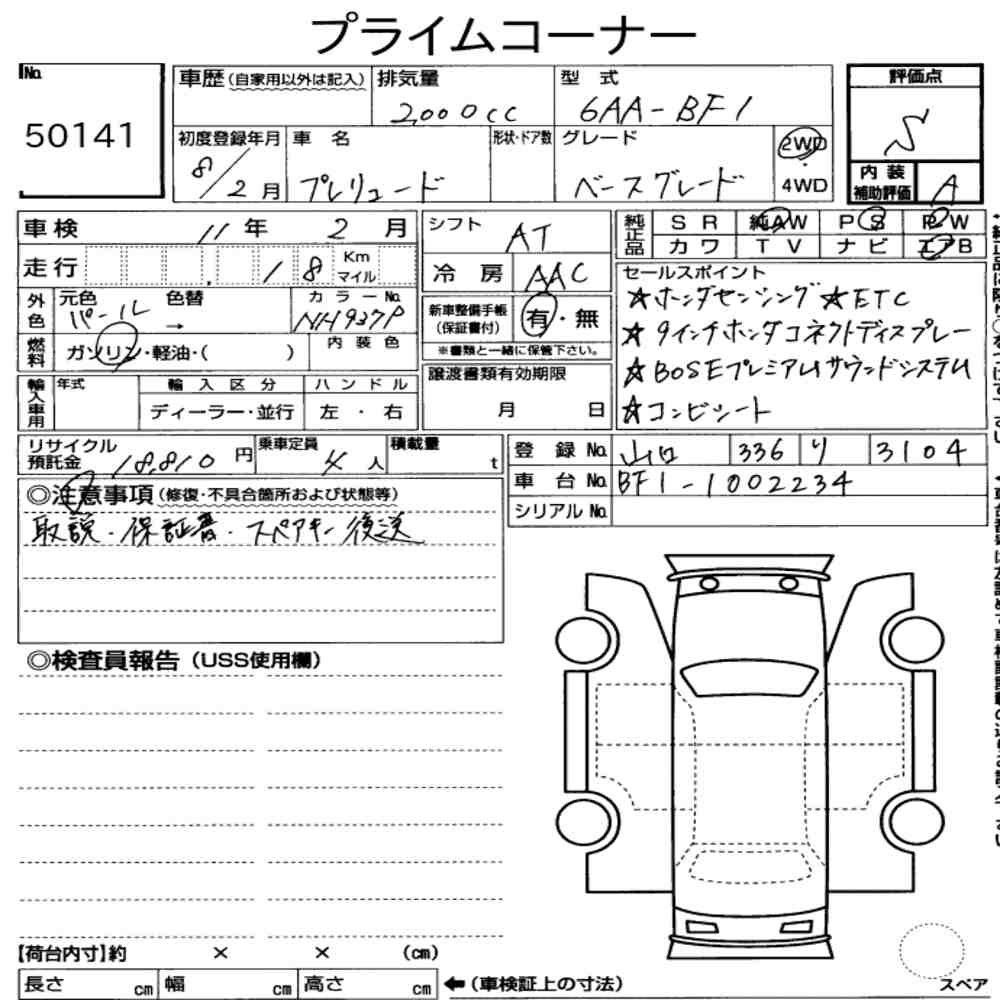 プライムコーナー
No.
50141
車歴(自家用以外は記入)
排気量
2000cc
型式
6AA-BF1
評価点
S
内装
補助評価
A
初度登録年月
8/2月
車名
プレリュード
形状・ドア数
グレード
ベースグレード
2WD
・
4WD
車検 11年 2月
走行 18 Km
マイル
外色
元色
パール
色替
→
カラーNo.
NH937P
燃料
ガソリン・軽油・( )
内装色
輸入車用
年式
輸入区分
ディーラー・並行
ハンドル
左・右
シフト
AT
冷房
AAC
新車整備手帳
(保証書付)
有・無
※書類と一緒に保管下さい。
譲渡書類有効期限
月 日
純正品
SR 純AW PS PW
カワ TV ナビ エアB
セールスポイント
☆ホンダセンシング ☆ETC
☆9インチホンダコネクトディスプレー
☆BOSEプレミアムサウンドシステム
☆コンビシート
リサイクル
預託金
18,810円
乗車定員
4人
積載量
t
登録No.
山口 336 り 3104
車台No.
BF1-1002234
シリアルNo.
◎注意事項(修復・不具合箇所および状態等)
取説・保証書・スペアキー後送
◎検査員報告(USS使用欄)
【荷台内寸】約 × × (cm)
長さ cm 幅 cm 高さ cm
←(車検証上の寸法)
スペア